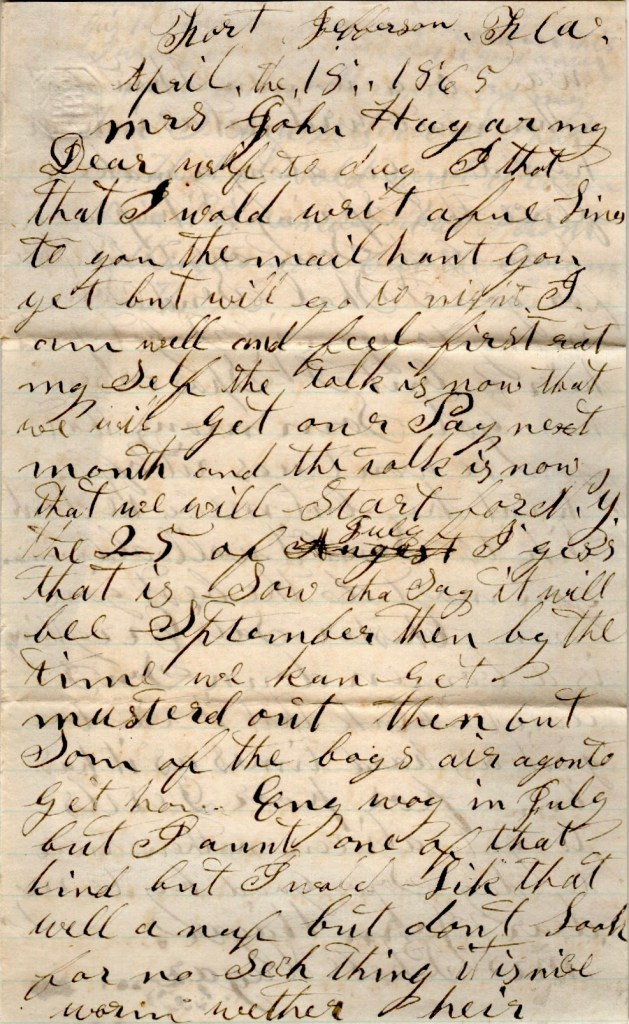 Fort Jefferson, Fla.
April, the, 15,, 1865
Mrs John Hagar my
Dear wife to day I that
that I wold writ a fue Lines
to you the mail hant gon
yet but will go to night. I
am well and feel first rat
my Self the talk is now that
we will Get our Pay next
month and the talk is now
that we will Start for N. Y.
July
the 25 of August I gess
that is Sow tha Say it will
bee Sptember then by the
time we kan Get
musterd out then but
Som of the boys air agonto
Get Eny way in July
but I aunt one of that
kind but I wold Lik that
well a nuf but dont Look
for no Sech thing it is nice
worm wether heir